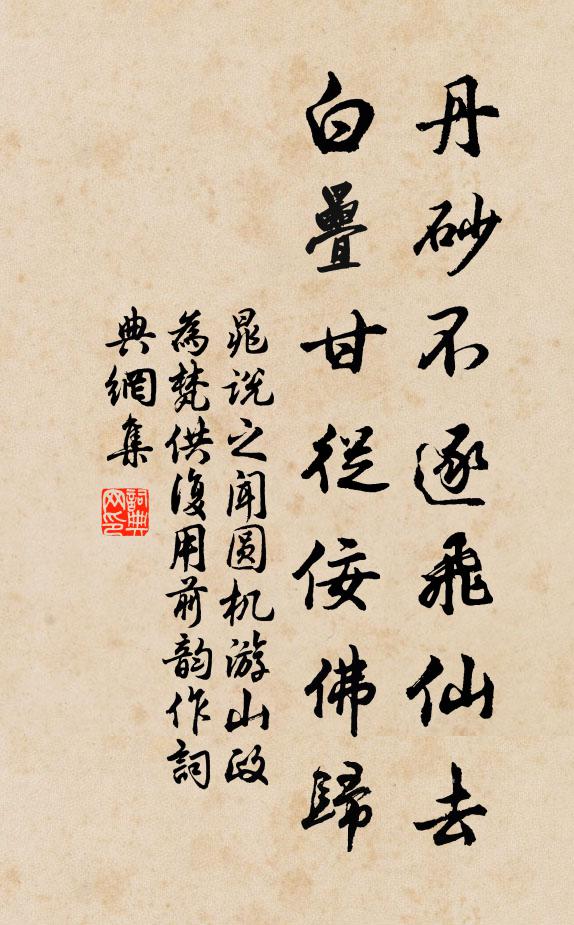 丹砂不逐飛仙去
白疊甘從佞佛歸
晁说之闻圆机游山政
為梵供復用前韵作詞
典網集
詞典网印